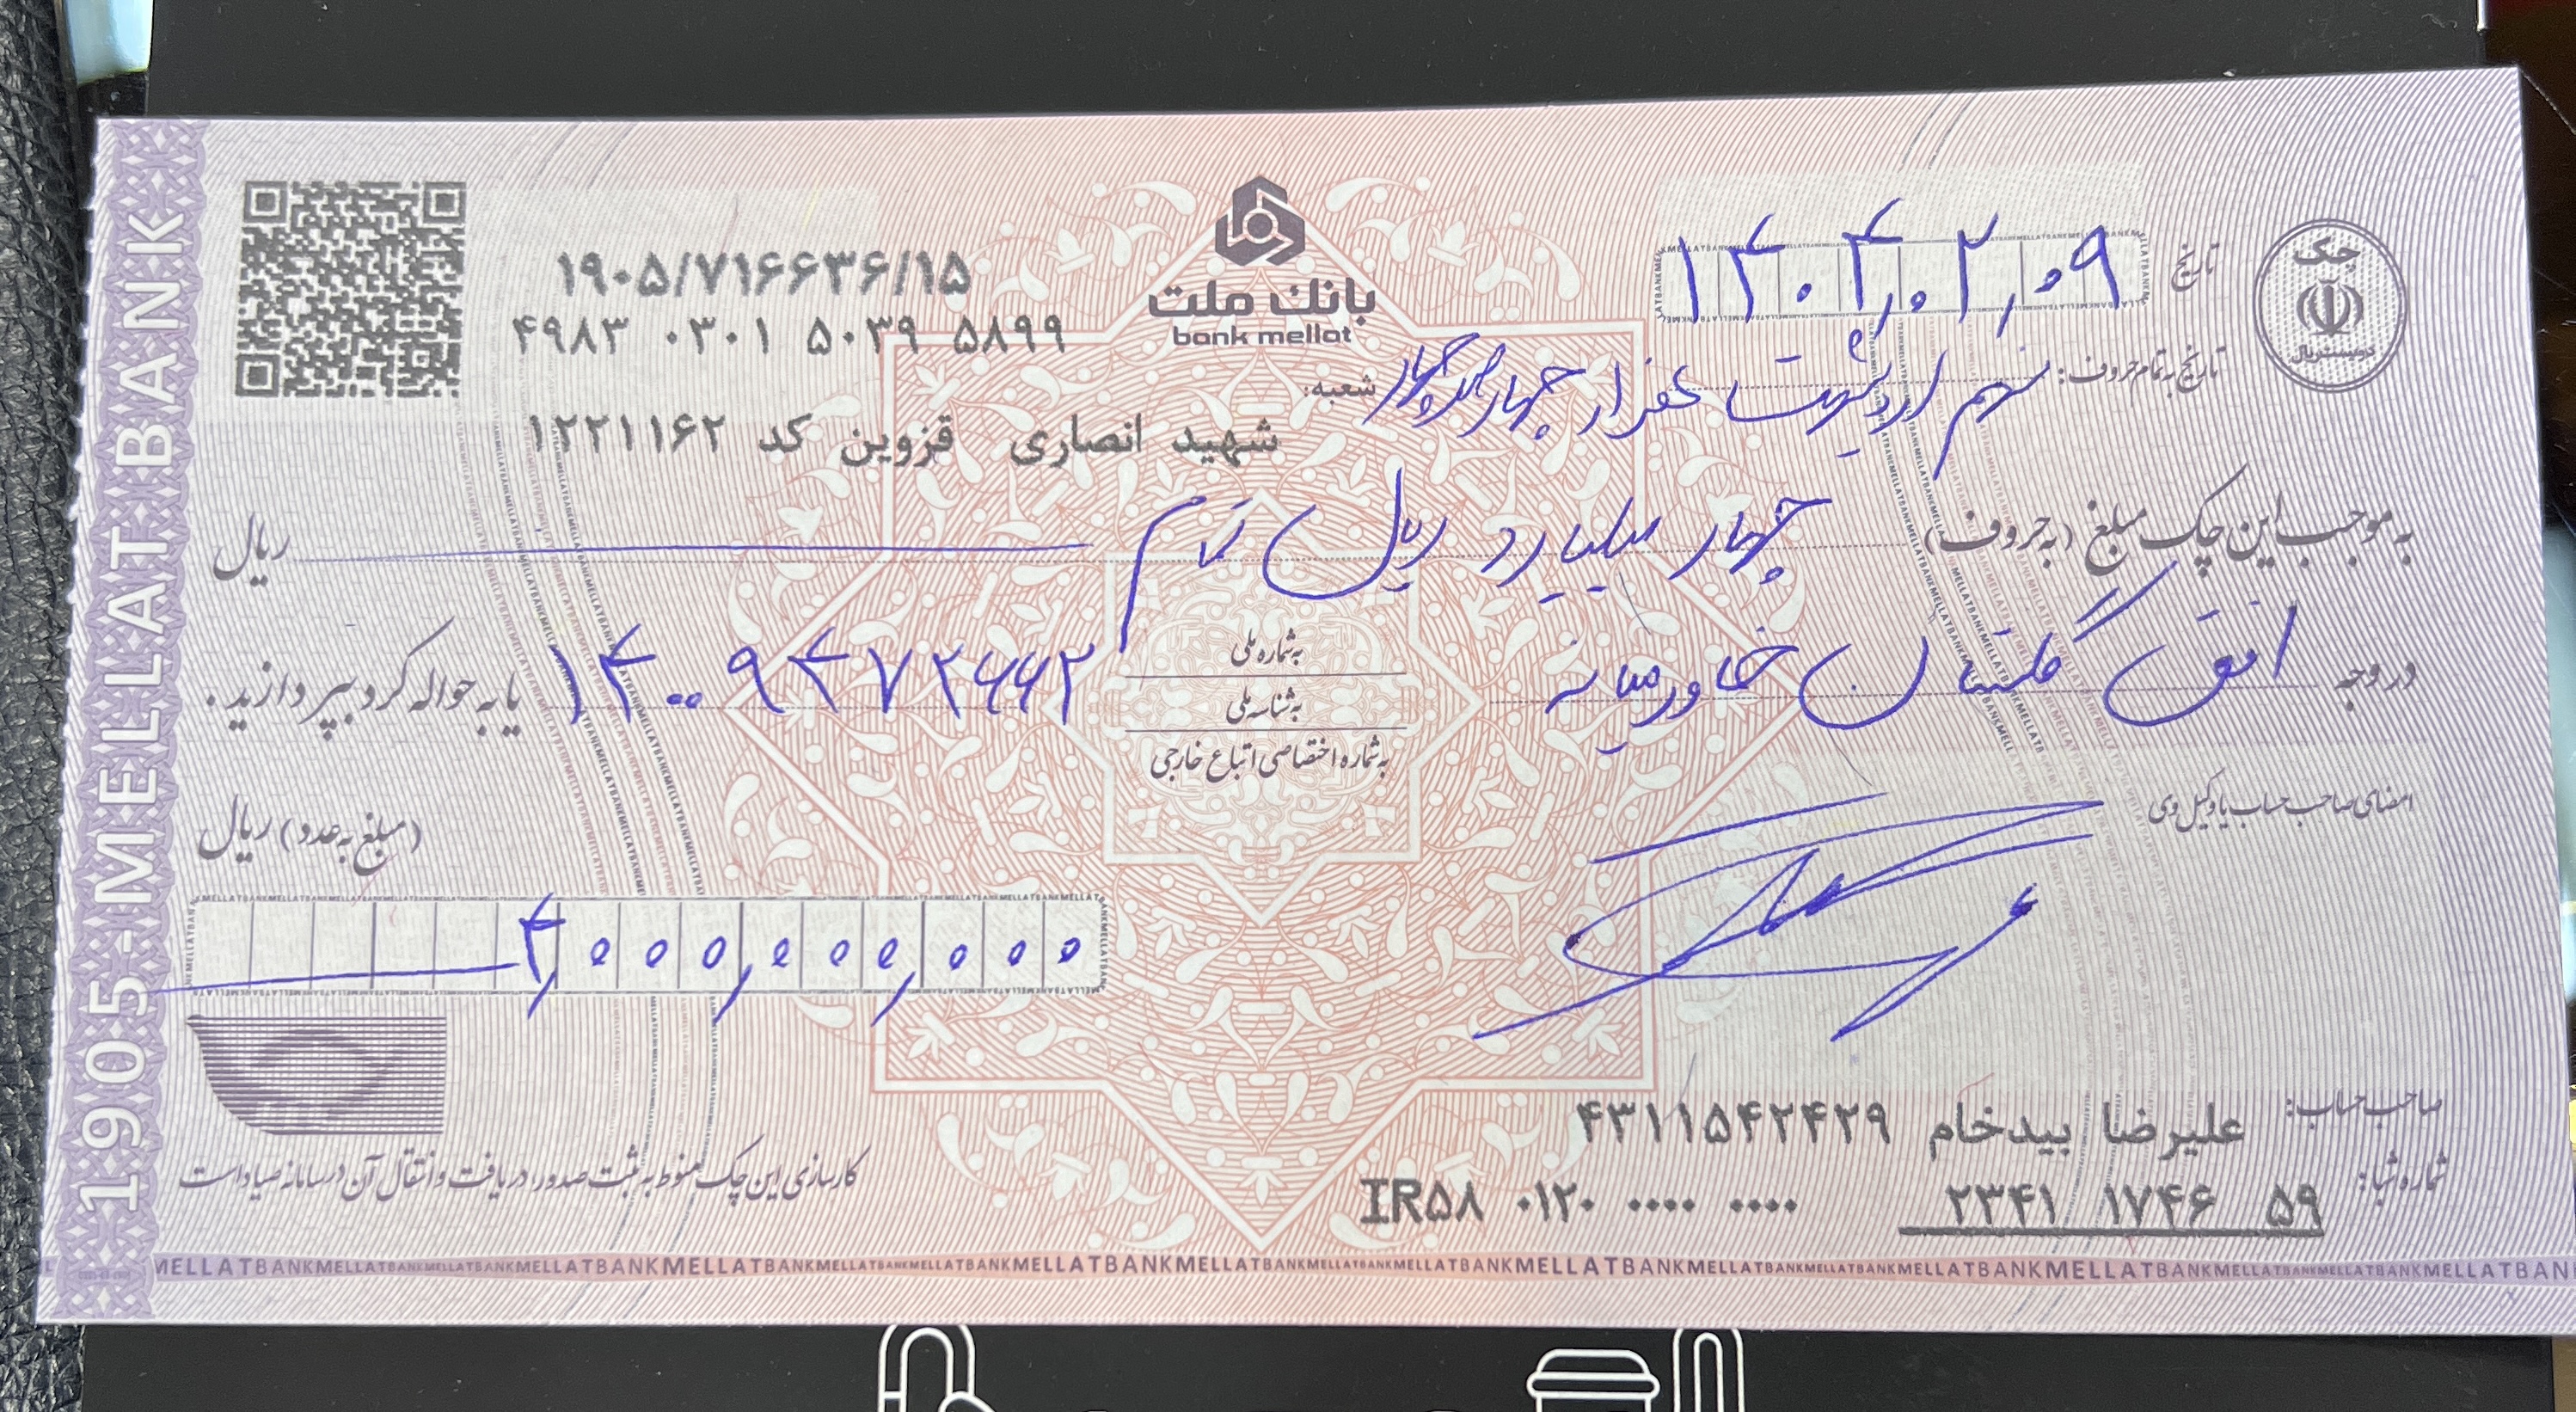 چک
دویست ریال
تاریخ ۱۴۰۴٫۰۲٫۰۹
تاریخ به تمام حروف: نهم اردیبهشت هزار چهارصد چهار
بانک ملت
bank mellat
۱۹۰۵/۷۱۶۶۳۶/۱۵
۴۹۸۳ ۰۳۰۱ ۵۰۳۹ ۵۸۹۹
شعبه:
شهید انصاری قزوین کد ۱۲۲۱۱۶۲
به موجب این چک مبلغ (به حروف) چهار میلیارد ریال تمام ریال
در وجه افق گلستان خاورمیانه
به شماره ملی
به شناسه ملی
به شماره اختصاصی اتباع خارجی
۱۴۰۰۹۴۷۲۶۶۲ یا به حواله کرد بپردازید.
امضای صاحب حساب یا وکیل وی
(مبلغ به عدد) ریال
۴,۰۰۰,۰۰۰,۰۰۰
صاحب حساب: علیرضا بیدخام ۴۳۱۱۵۴۲۴۲۹
شماره شبا: IR۵۸ ۰۱۲۰ ۰۰۰۰ ۰۰۰۰ ۲۳۴۱ ۱۷۴۶ ۵۹
کارسازی این چک منوط به ثبت صدور، دریافت و انتقال آن در سامانه صیاد است
1905-MELLAT BANK
MELLATBANKMELLATBANKMELLATBANKMELLATBANKMELLATBANK